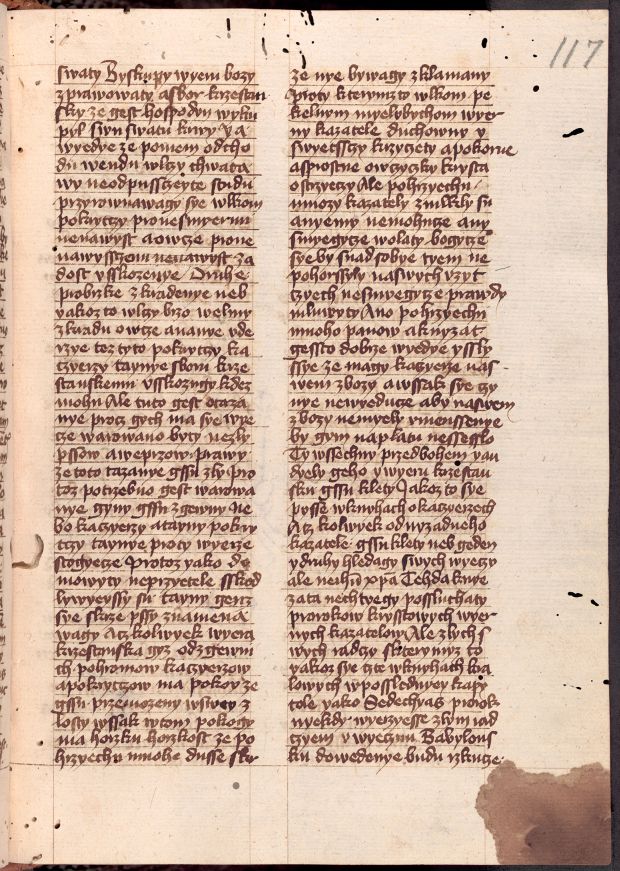 117
swaty Byskupy wyem bozy
zprawowaty a sbor krzestan
sky ze gest hospodyn wyku
pyl swu swatu krwy Ya
wyedye ze po mem odcho
du wendu wlczy chwata
wy neodpusscegyce stadu
przyrownawagy sye wlkom
pokrytczy pro nesmyernu
nenawyst a owcze pro ne
nawysszem nenawyst za
dost vsskozenye Druhe
proto ze zkradenye neb
yakoz to wlczy brzo welmy
zkradu owcze a nanye vde
rzye tez tyto pokrytczy ka
czyerzy taynye sboru krze
stanskemu vsskozugy kdez
mohu Ale tuto gest otaza
nye procz gich ma sye wye
cze warowano byty nezly
pssow a weprzow prawy
ze toto tazanye gssu zly pro
toz potrzebno gest warowa
nye gym gssu zgewny Ne
bo kaczyerzy a tayny pokry
tczy taynye proty wyerze
stogyecze Protoz yako do
mowyty neprzyetele sskod
lywyeyssy su tayny genz
sye skrze pssy zname na
wagy Aczkolywyek wyera
krzestanska gyz od zgewni
ch pohromow kaczyerzow
a pokrytczow ma pokoy ze
gssu przemozeny w swey z
losty wssak w tom pokogy
ma horzku horzkost ze po
hrzyechu mnohe dusse skr
ze nye bywagy zklamany
Proty kterymzto wlkom pe
kelnym myelybychom wyer
ny kazatele duchowny y
swyetsszy krzyczety a pokorne
a sprostne owczyczky krysta
ostrzyeczy Ale pohrzyechu
mnozy kazately zmlkly su
a nyemy nemohucze any
smyegycze wolaty bogycze
sye by snad sobye tyem ne
pohorssyly na swych vzyt
czyech nesmyegycze prawdy
mluwyty Ano pohrzyechu
mnoho panow a knyzat
gessto dobrze wyedye yssly
ssye ze magy kaczyerze nas
wem zbozy a wssak sye czy
nye newyeducze aby na swem
zbozy nemyely vmenssenye
by gym na platu nessesslo
Ty wssechny przed bohem y an
dyely geho y wyeru krzestan
sku gssu klety Jakoz to sye
pysse w knyhach o kaczyerzech
Aczkolwyek od nyzadneho
kazatele gssu klety neb geden
y druhy hledagy swych wyeczy
ale ne ihu xpa Tehda knye
zata nechtyegy possluchaty
prorokow krystowych wyer
nych kazatelow Ale zlych s
wych radczy s kterymyz to
yakoz sye czte w knyhach kra
lowych w poslednyey kapy
tole yako Sedechyas prorok
nyekdy wyerzyesse zlym rad
czyem y wyeznu Babylons
ku dowedenye budu zkuze